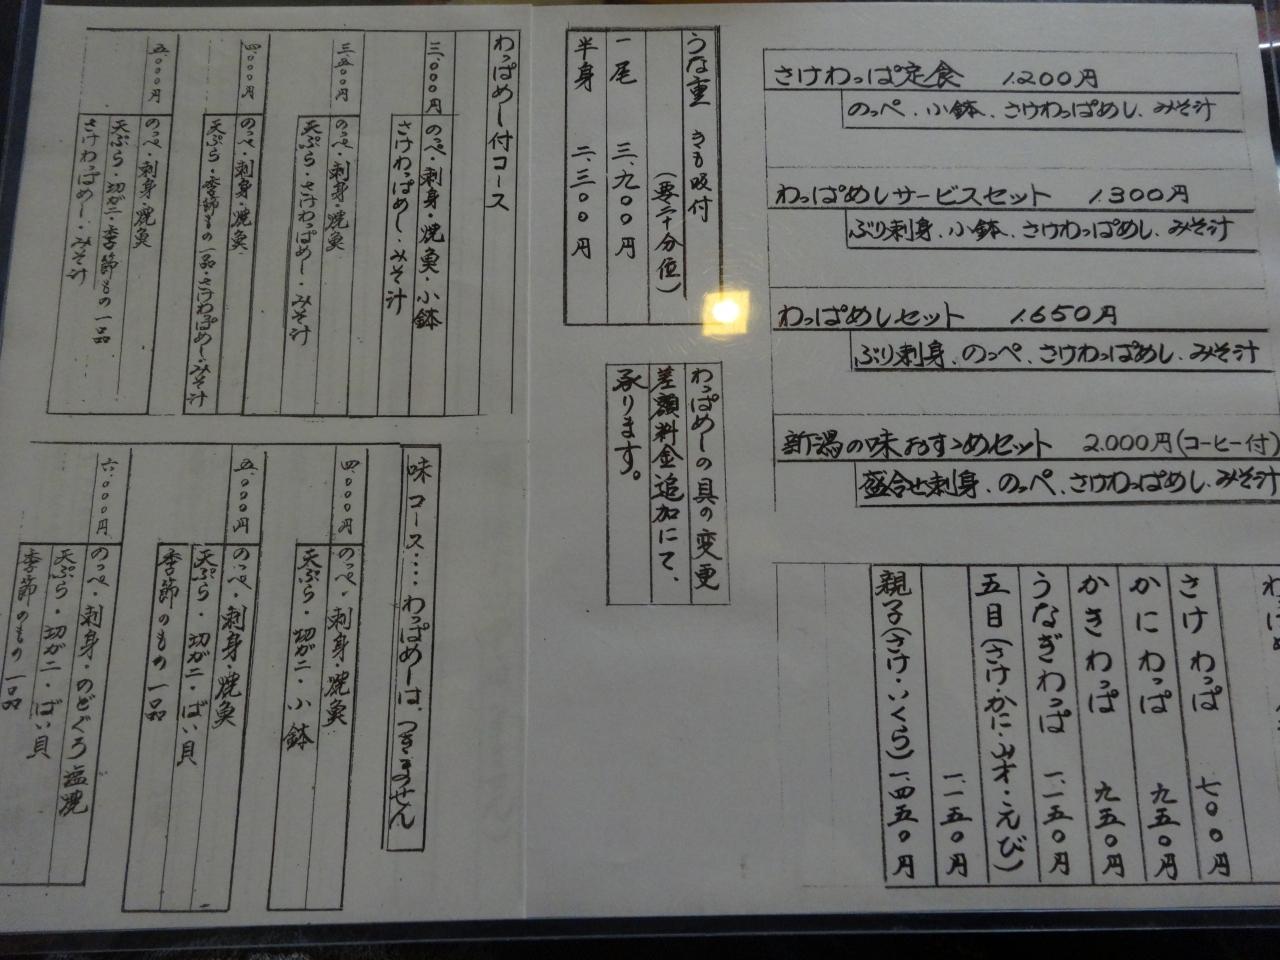 さけわっぱ定食 1.200円
のっペ、小鉢、さけわっぱめし、みそ汁
わっぱめしサービスセット 1.300円
ぶり刺身、小鉢、さけわっぱめし、みそ汁
わっぱめしセット 1.650円
ぶり刺身、のっぺ、さけわっぱめし、みそ汁
新潟の味おすゝめセット 2.000円(コーヒー付)
盛合せ刺身、のっペ、さけわっぱめし、みそ汁
さけわっぱ 七〇〇円
かにわっぱ 九五〇円
かきわっぱ 九五〇円
うなぎわっぱ 一、一五〇円
五目(さけ・かに・山才・えび)
一、一五〇円
親子(さけ・いくら)一、四五〇円
うな重 きも吸付
(要二十分位)
一尾 三、九〇〇円
半身 二、三〇〇円
わっぱめしの具の変更
差額料金追加にて、
承ります。
わっぱめし付コース
三、〇〇〇円 のっペ・刺身・焼魚・小鉢
さけわっぱめし・みそ汁
三、五〇〇円 のっペ・刺身・焼魚
天ぷら・さけわっぱめし・みそ汁
四、〇〇〇円 のっペ・刺身・焼魚
天ぷら・季節もの一品・さけわっぱめし・みそ汁
五、〇〇〇円 のっペ・刺身・焼魚
天ぷら・切ガニ・季節もの一品
さけわっぱめし・みそ汁
味コース・・・・わっぱめしは、つきません
四、〇〇〇円 のっペ・刺身・焼魚
天ぷら・切ガニ・小鉢
五、〇〇〇円 のっペ・刺身・焼魚
天ぷら・切ガニ・ばい貝
季節のもの一品
六、〇〇〇円 のっペ・刺身・のどぐろ塩焼
天ぷら・切ガニ・ばい貝
季節のもの一品